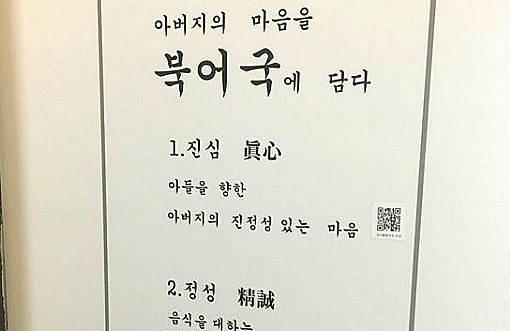 아버지의 마음을
북어국에 담다
1.진심 眞心
아들을 향한
아버지의 진정성 있는 마음
2.정성 精誠
음식을 대하는